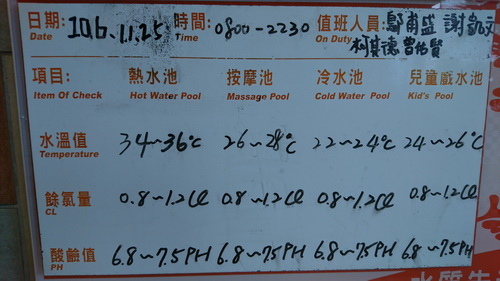 日期: 106.11.25 時間: 0800-2230 值班人員:
Date Time On Duty 柯其德
項目: 熱水池 按摩池 冷水池 兒童戲水池
Item Of Check Hot Water Pool Massage Pool Cold Water Pool Kid's Pool
水溫值 34~36℃ 26~28℃ 22~24℃ 24~26℃
Temperature
餘氯量 0.8~1.2Cl 0.8~1.2Cl 0.8~1.2Cl 0.8~1.2Cl
CL
酸鹼值 6.8~7.5PH 6.8~7.5PH 6.8~7.5PH 6.8~7.5PH
PH
水質